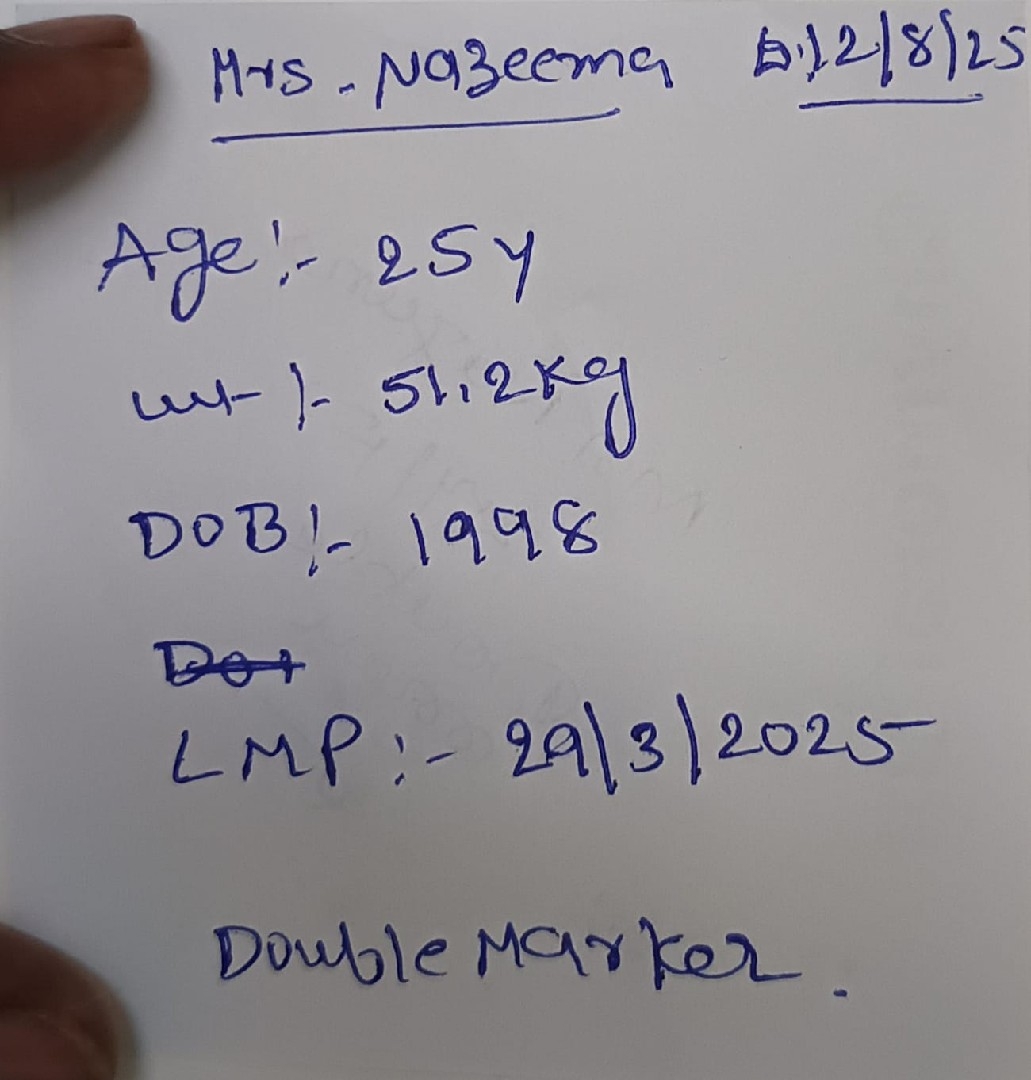 Mrs. Nazeema D:12/8/25
Age:- 25y
wt:- 51.2kg
DOB:- 1998
LMP:- 29/3/2025
Double Marker.